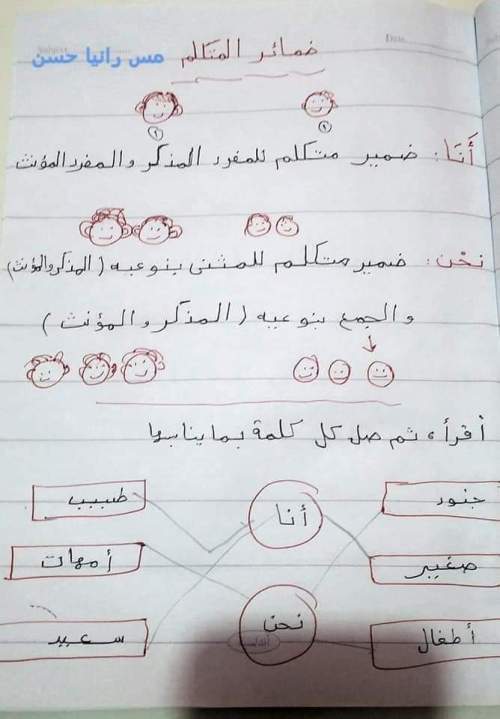 ضمائر المتكلم مس رانيا حسن
Date
أَنَا: ضمير متكلم للمفرد المذكر والمفرد المؤنث
نحْن: ضمير متكلم للمثنى بنوعيه (المذكر والمؤنث)
والجمع بنوعيه (المذكر والمؤنث)
أقرأ، ثم صل كل كلمة بما يناسبها
جنود أنا طبيب
صغير أمهات
أطفال نحن سعيد